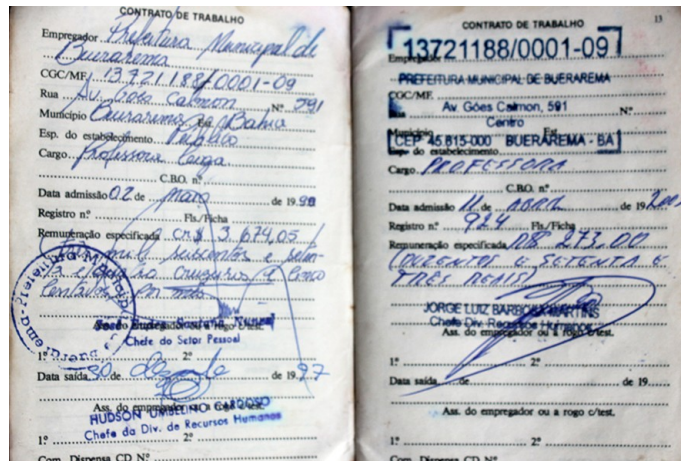 CONTRATO DE TRABALHO
Empregador Prefeitura Municipal de
Buerarema
CGC/MF. 13.721188/0001-09
Rua Av. Góes Calmon Nº 591
Município Buerarema Est. Bahia
Esp. do estabelecimento Público
Cargo Professora Leiga
C.B.O. nº
Data admissão 02 de maio de 1990
Registro nº Fls./Ficha
Remuneração especificada CR$ 3.674,05
mil seiscentos e
e quatro cruzeiros e cinco
centavos
Chefe do Setor Pessoal
1º 2º
Data saída 30 de de 1997
Ass. do empregador ou a rogo c/test.
HUDSON UMBELINO CARDOSO
Chefe da Div. de Recursos Humanos
1º 2º
Com. Dispensa CD Nº
CONTRATO DE TRABALHO 13
13721188/0001-09
Empregador
PREFEITURA MUNICIPAL DE BUERAREMA
CGC/MF.
Rua Av. Góes Calmon, 591 Nº
Centro
Município Est.
CEP 45.615-000 BUERAREMA - BA
Esp. do estabelecimento
Cargo PROFESSORA
C.B.O. nº
Data admissão 11 de ABRIL de 19
Registro nº 924 Fls./Ficha
Remuneração especificada R$ 273,00
(DUZENTOS E SETENTA E
TRES REAIS)
JORGE LUIZ BARBOSA MARTINS
Chefe Div. Recursos Humanos
Ass. do empregador ou a rogo c/test.
1º 2º
Data saída de de 19
Ass. do empregador ou a rogo c/test.
1º 2º
Com. Dispensa CD Nº